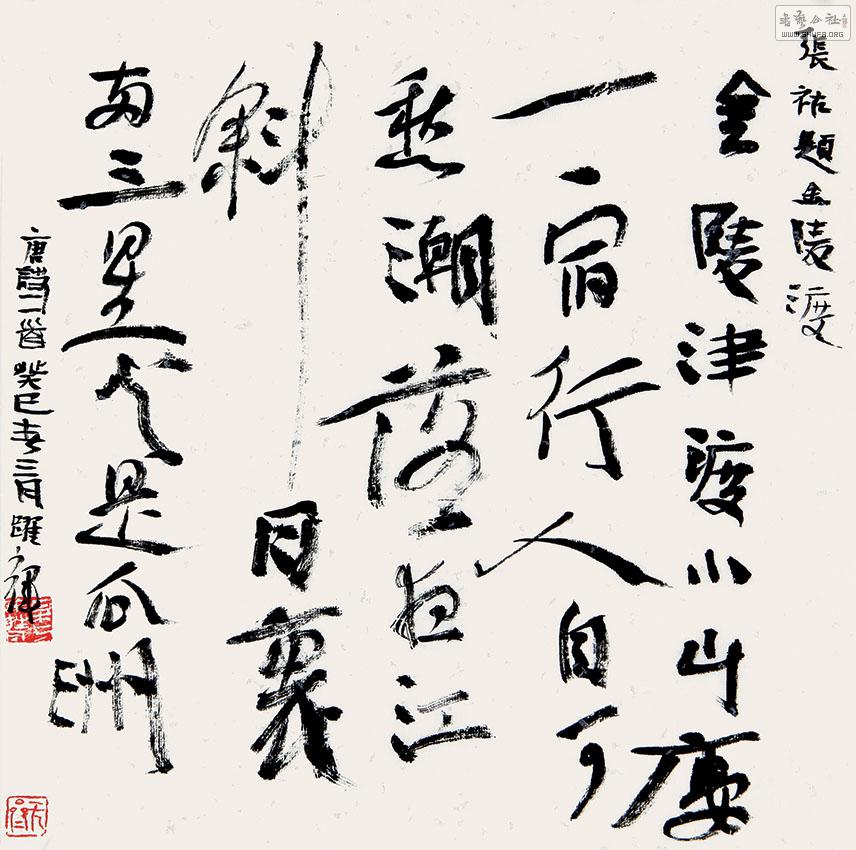 書藝公社
WWW.SHUFA.ORG
張祜題金陵渡
金陵津渡小山廔
一宿行人自可
愁潮落夜江
斜月裏
两三星火是瓜洲
唐詩二首癸巳春三月躍